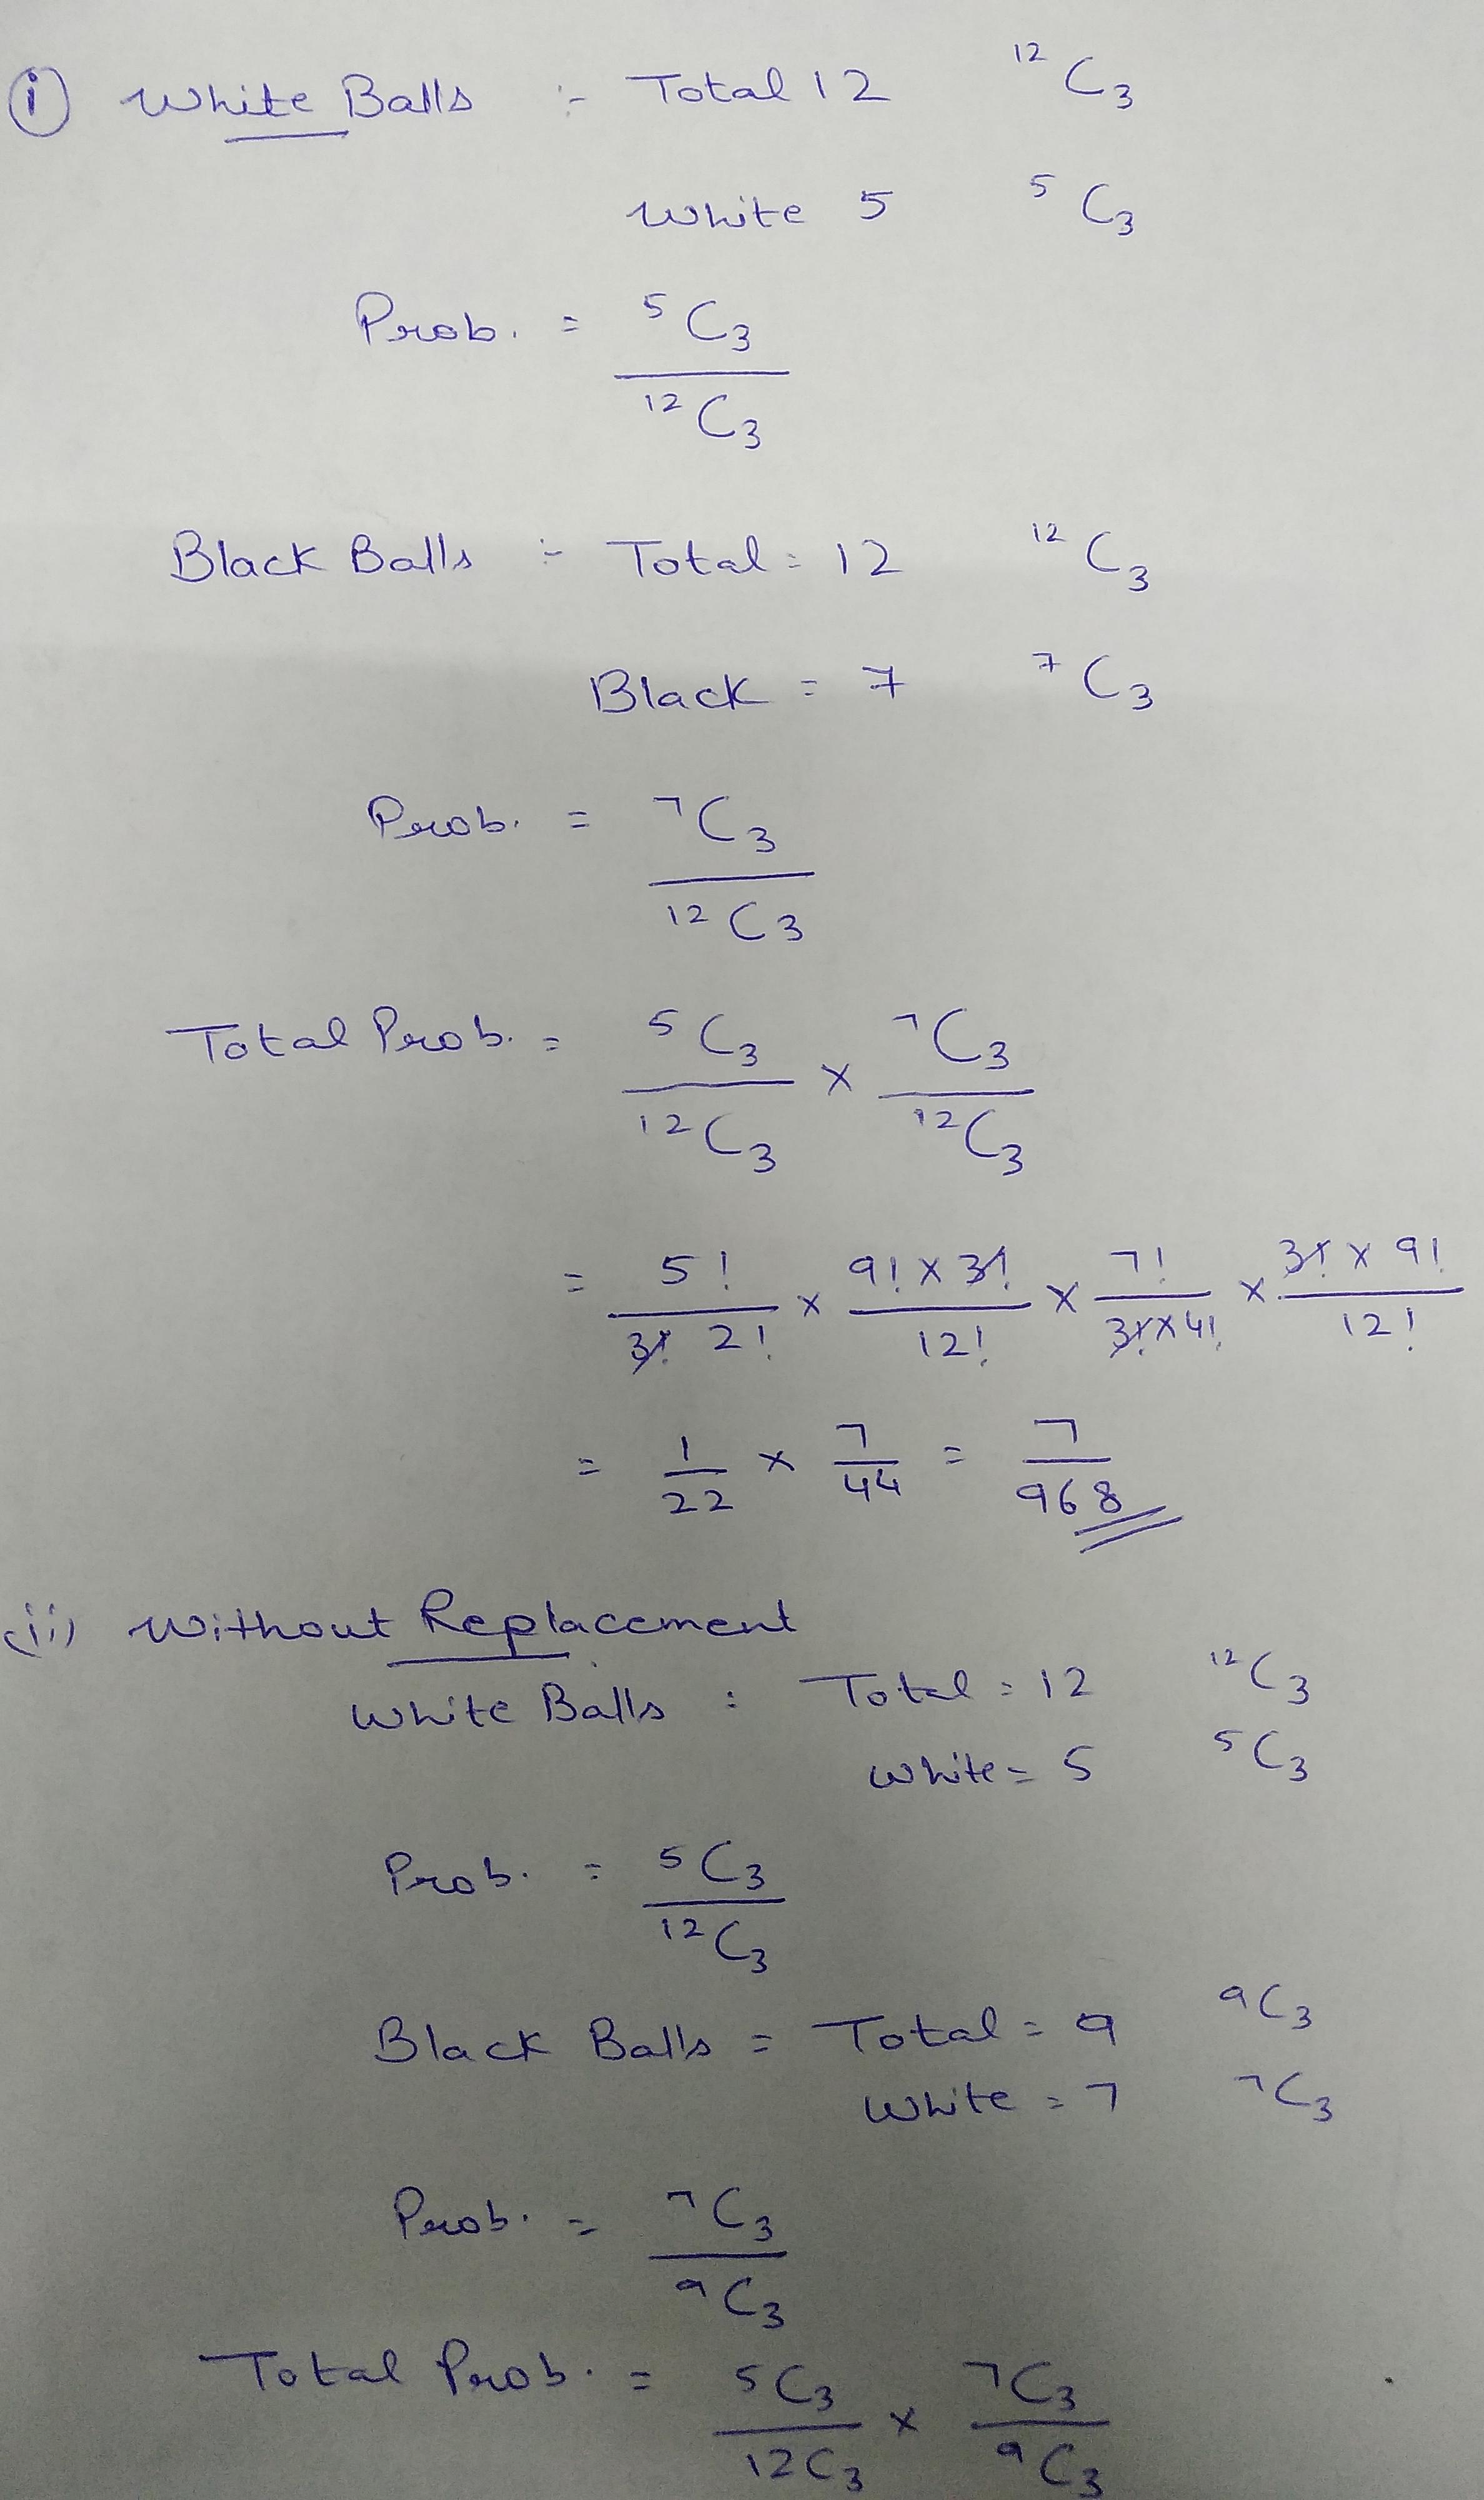 (i) White Balls :- Total 12 ¹²C₃
White 5 ⁵C₃
Prob. = ⁵C₃ / ¹²C₃
Black Balls :- Total = 12 ¹²C₃
Black = 7 ⁷C₃
Prob. = ⁷C₃ / ¹²C₃
Total Prob. = ⁵C₃ / ¹²C₃ × ⁷C₃ / ¹²C₃
= 5! / 3! 2! × 9! × 3! / 12! × 7! / 3! × 4! × 3! × 9! / 12!
= 1/22 × 7/44 = 7/968
(ii) Without Replacement
White Balls : Total = 12 ¹²C₃
White = 5 ⁵C₃
Prob. = ⁵C₃ / ¹²C₃
Black Balls = Total = 9 ⁹C₃
White = 7 ⁷C₃
Prob. = ⁷C₃ / ⁹C₃
Total Prob. = ⁵C₃ / 12C₃ × ⁷C₃ / ⁹C₃